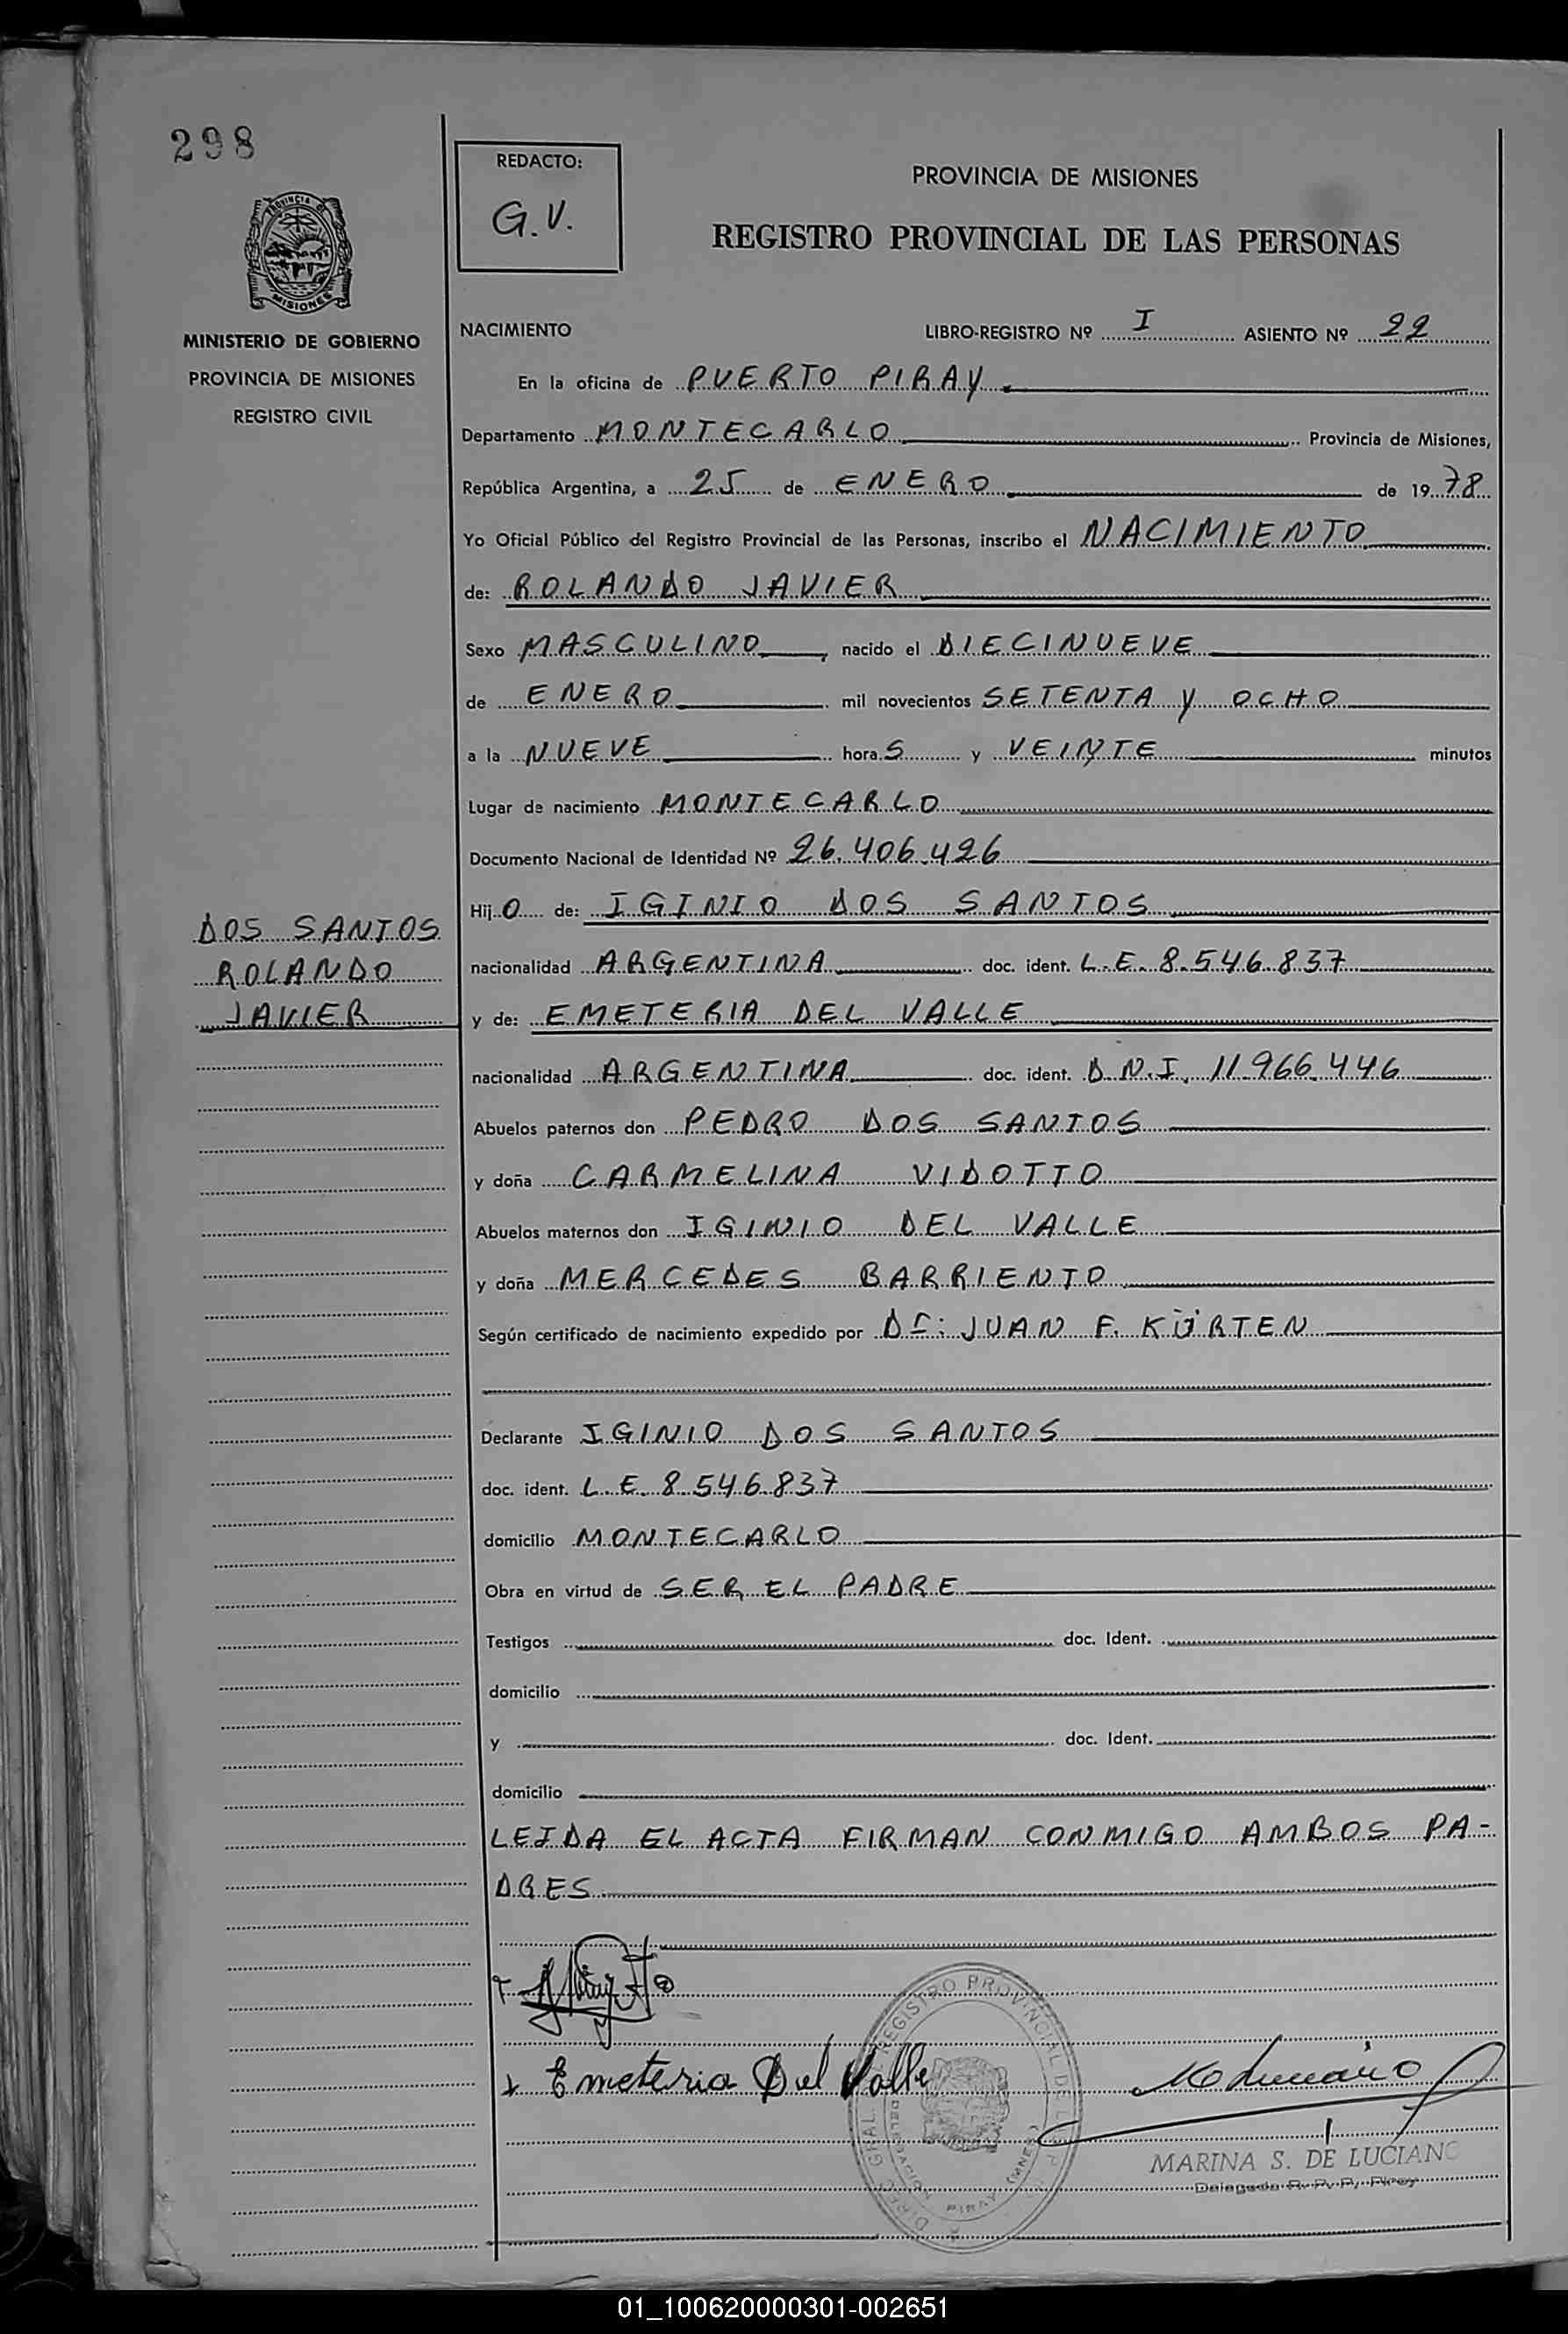 298
REDACTO:
G.V.
PROVINCIA DE MISIONES
REGISTRO PROVINCIAL DE LAS PERSONAS
MISIONES
MINISTERIO DE GOBIERNO
PROVINCIA DE MISIONES
REGISTRO CIVIL
NACIMIENTO LIBRO-REGISTRO Nº I ASIENTO Nº 22
En la oficina de PUERTO PIRAY
Departamento MONTECARLO Provincia de Misiones,
República Argentina, a 25 de ENERO de 1978
Yo Oficial Público del Registro Provincial de las Personas, inscribo el NACIMIENTO
de: ROLANDO JAVIER
Sexo MASCULINO, nacido el DIECINUEVE
de ENERO mil novecientos SETENTA y OCHO
a la NUEVE hora S y VEINTE minutos
Lugar de nacimiento MONTECARLO
Documento Nacional de Identidad Nº 26.406.426
Hij O de: IGINIO DOS SANTOS
DOS SANTOS
ROLANDO
JAVIER
nacionalidad ARGENTINA doc. ident. L.E. 8.546.837
y de: EMETERIA DEL VALLE
nacionalidad ARGENTINA doc. ident. D.N.I. 11.966.446
Abuelos paternos don PEDRO DOS SANTOS
y doña CARMELINA VIDOTTO
Abuelos maternos don IGINIO DEL VALLE
y doña MERCEDES BARRIENTO
Según certificado de nacimiento expedido por Dr: JUAN F. KÜRTEN
Declarante IGINIO DOS SANTOS
doc. ident. L.E. 8.546.837
domicilio MONTECARLO
Obra en virtud de SER EL PADRE
Testigos doc. Ident.
domicilio
y doc. Ident.
domicilio
LEIDA EL ACTA FIRMAN CONMIGO AMBOS PA-
DRES
Emeteria Del Valle
REGISTRO PROVINCIAL DE
MARINA S. DE LUCIANO
Delegada R. P. P. Piray
01_100620000301-002651